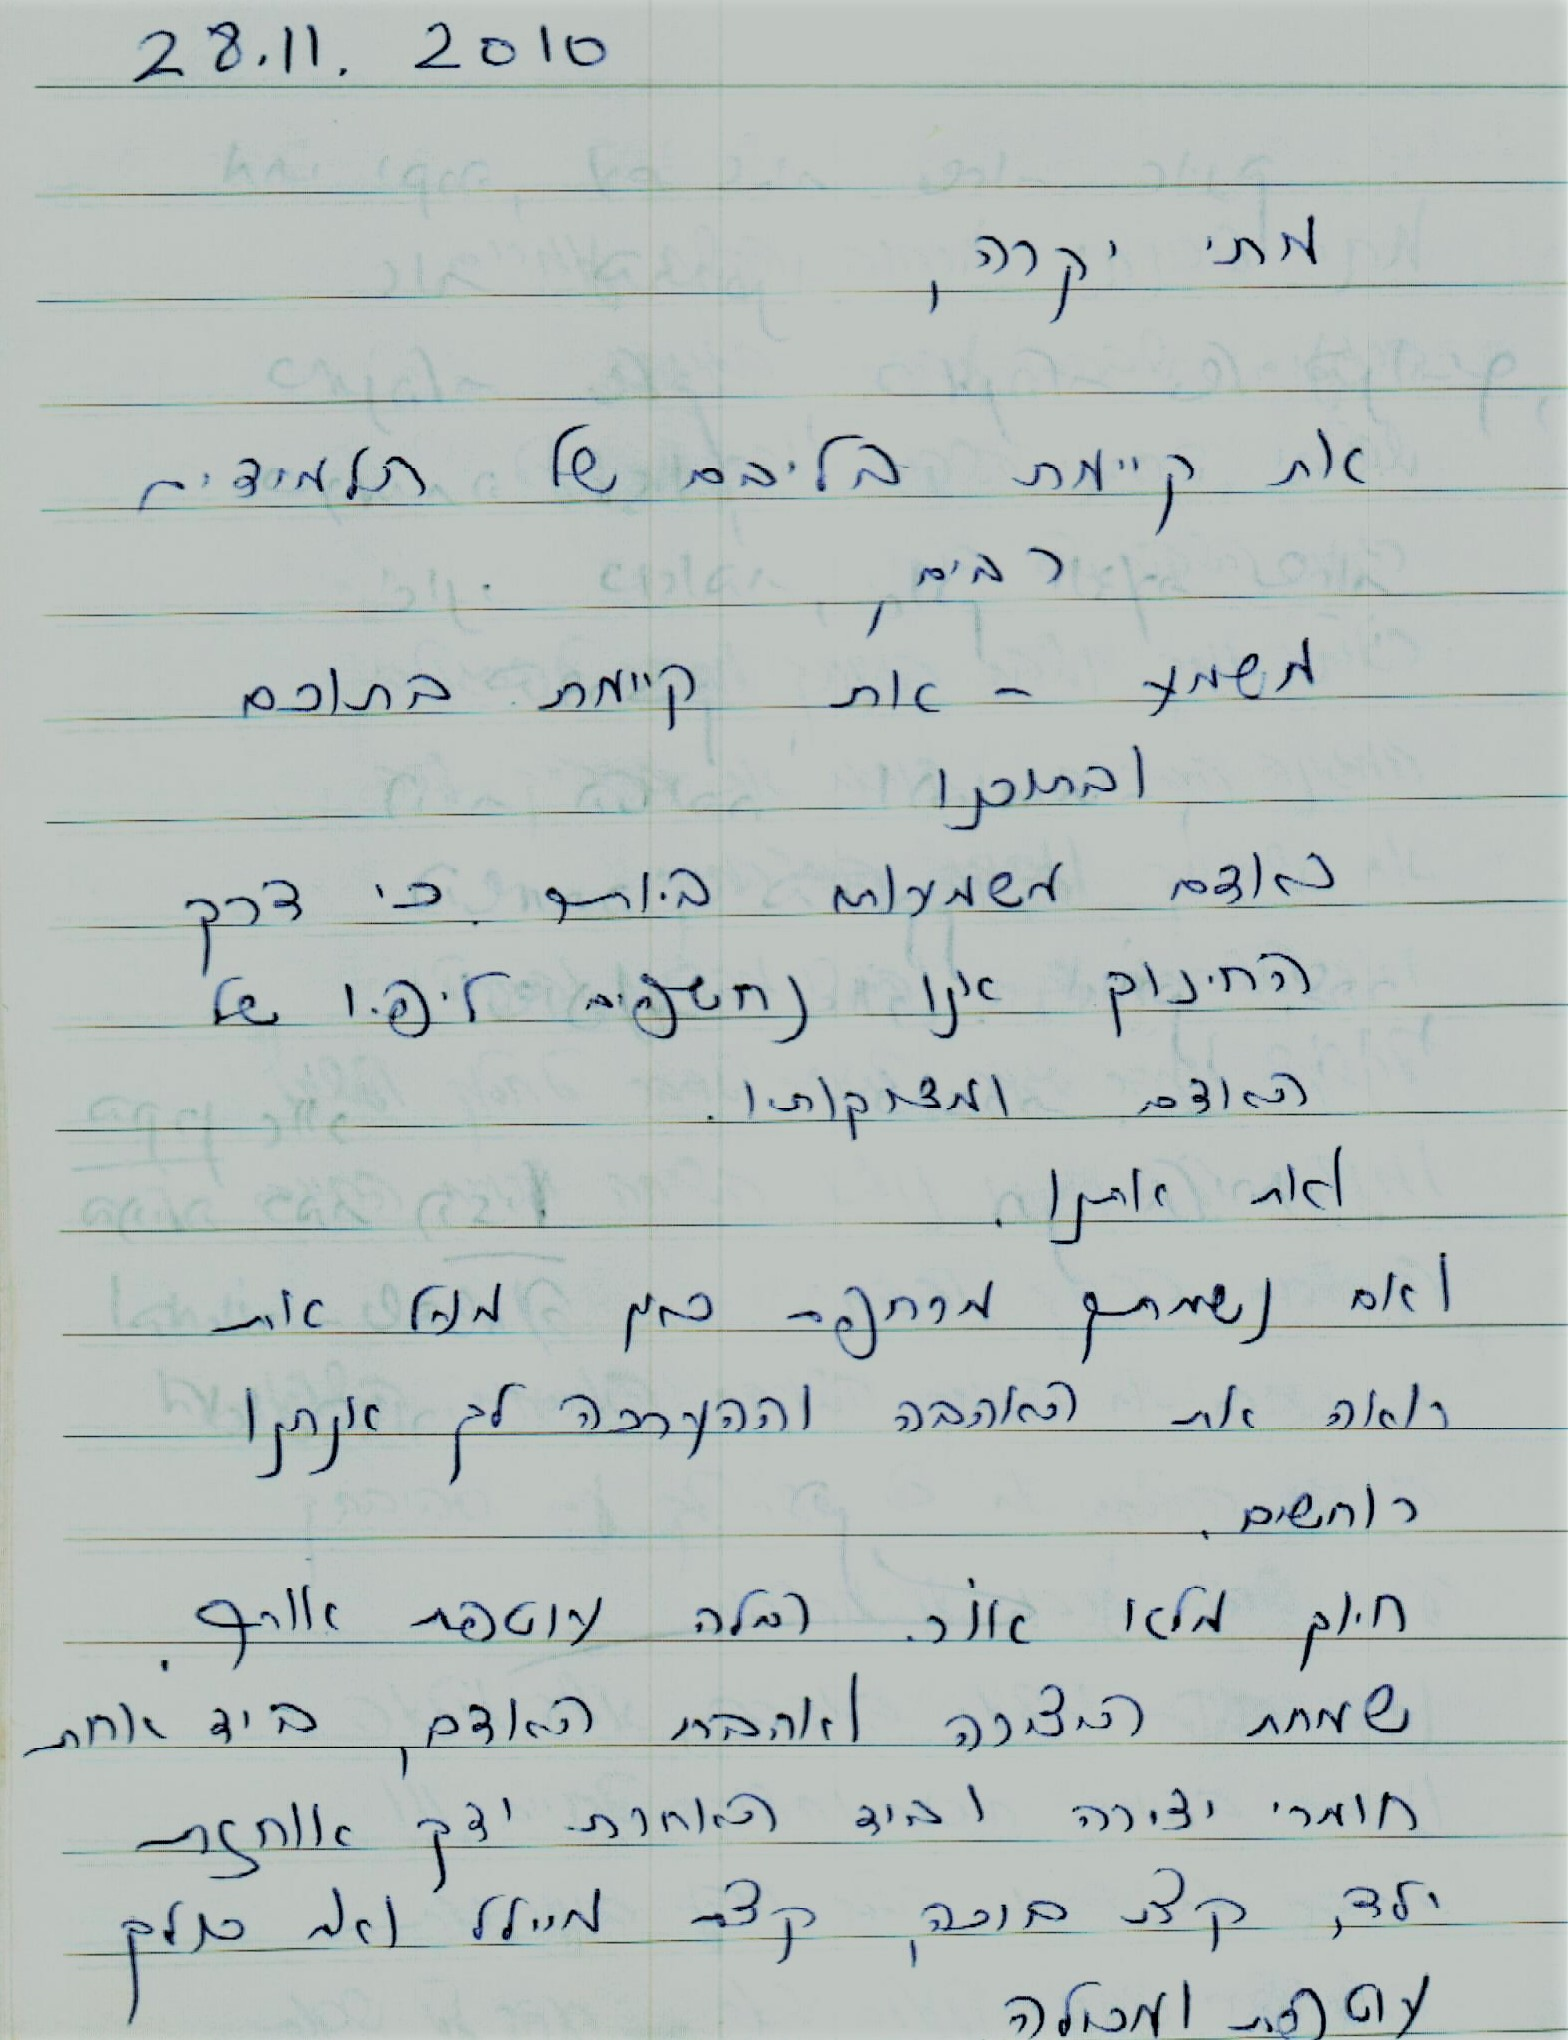 28.11.2010
מתי יקרה,
את קיימת בליבם של תלמידים
רבים,
משמע - את קיימת בתוכם
ובתוכנו
כאדם משמעותי ביותר. כי דרך
החינוך אנו נחשפים ליפיו של
האדם ומצוקותיו.
ואת אותנו.
ואם נשמתך מרחפת כאן ממעל את
רואה את האהבה וההערכה לך אנחנו
רוחשים.
חיוך מלאו אור. הילה עוטפת אותך.
שמחת היצירה ואהבת האדם, ביד אחת
חומרי יצירה וביד האחרת ידך אוחזת
ילד, קצת בוכה, קצת מיילל ואת כולך
עוטפת ומכילה